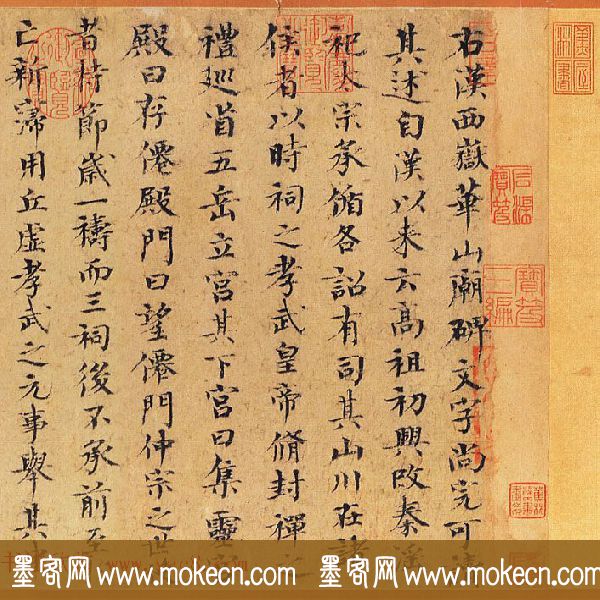 右漢西嶽華山廟碑文字尚完可
其述自漢以来云高祖初興改秦淫
祀太宗承循各詔有司其山川在諸
侯者以時祠之孝武皇帝脩封禪之
禮巡省五岳立宮其下宮曰集靈
殿曰存僊殿門曰望僊門仲宗之世
者持節歲一禱而三祠後不承前至
亡新寖用丘虛孝武之元事舉其
墨客网 www.mokecn.com 墨客网 www.mokecn.com